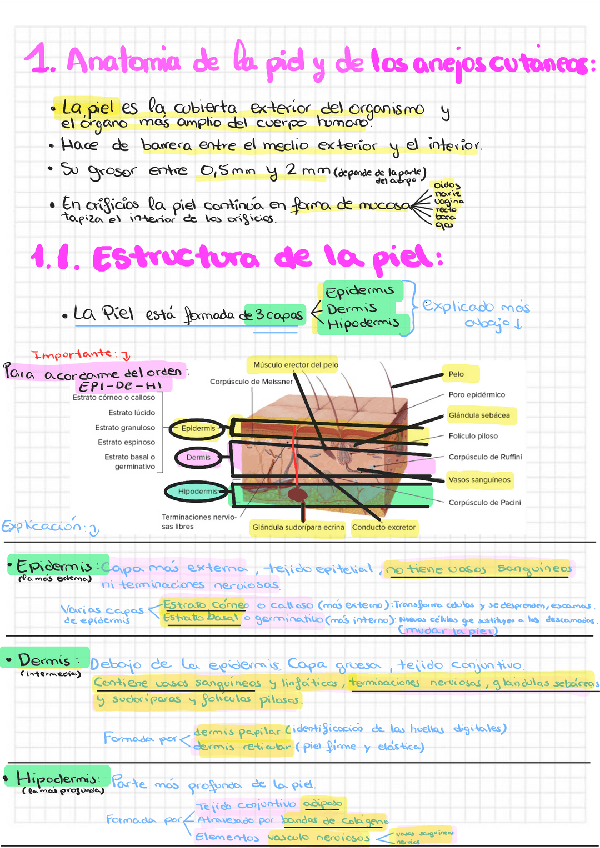 1. Anatomia de la piel y de los anejos cutáneos:
• La piel es la cubierta exterior del organismo y
el órgano más amplio del cuerpo humano.
• Hace de barrera entre el medio exterior y el interior.
• Su grosor entre 0,5mm y 2 mm (depende de la parte
del cuerpo)
• En orificios la piel continúa en forma de mucosa
tapiza el interior de los orificios.
oidos
nariz
vagina
recto
boca
ojos
1.1. Estructura de la piel:
• La Piel está formada de 3 capas
Epidermis
Dermis
Hipodermis
Explicado más
abajo ↓
Importante: ↓
Para acordarme del orden:
EPI-DE-HI
Estrato córneo o calloso
Estrato lúcido
Estrato granuloso
Estrato espinoso
Estrato basal o
germinativo
Epidermis
Dermis
Hipodermis
Terminaciones nervio-
sas libres
Corpúsculo de Meissner
Músculo erector del pelo
Pelo
Poro epidérmico
Glándula sebácea
Folículo piloso
Corpúsculo de Ruffini
Vasos sanguíneos
Corpúsculo de Pacini
Glándula sudorípara ecrina
Conducto excretor
Explicación: ↓
• Epidermis: Capa más externa, tejido epitelial, no tiene vasos sanguíneos
(la más externa)
ni terminaciones nerviosas.
Varias capas
de epidermis
Estrato córneo o calloso (más externo): Transforma células y se desprenden, escamas.
Estrato basal o germinativo (más interno): Nuevas células que sustituyen a las descamadas.
(mudar la piel)
• Dermis: Debajo de la epidermis. Capa gruesa, tejido conjuntivo.
(intermedia)
Contiene vasos sanguíneos y linfáticos, terminaciones nerviosas, glándulas sebáceas
y sudoríparas y folículos pilosos.
Formada por
dermis papilar (identificació de las huellas digitales)
dermis reticular (piel firme y elástica)
• Hipodermis: Parte más profunda de la piel.
(la más profunda)
Formada por
Tejido conjuntivo adiposo
Atravesado por bandas de colágeno
Elementos vasculo nerviosos
vasos sanguíneos
nervios